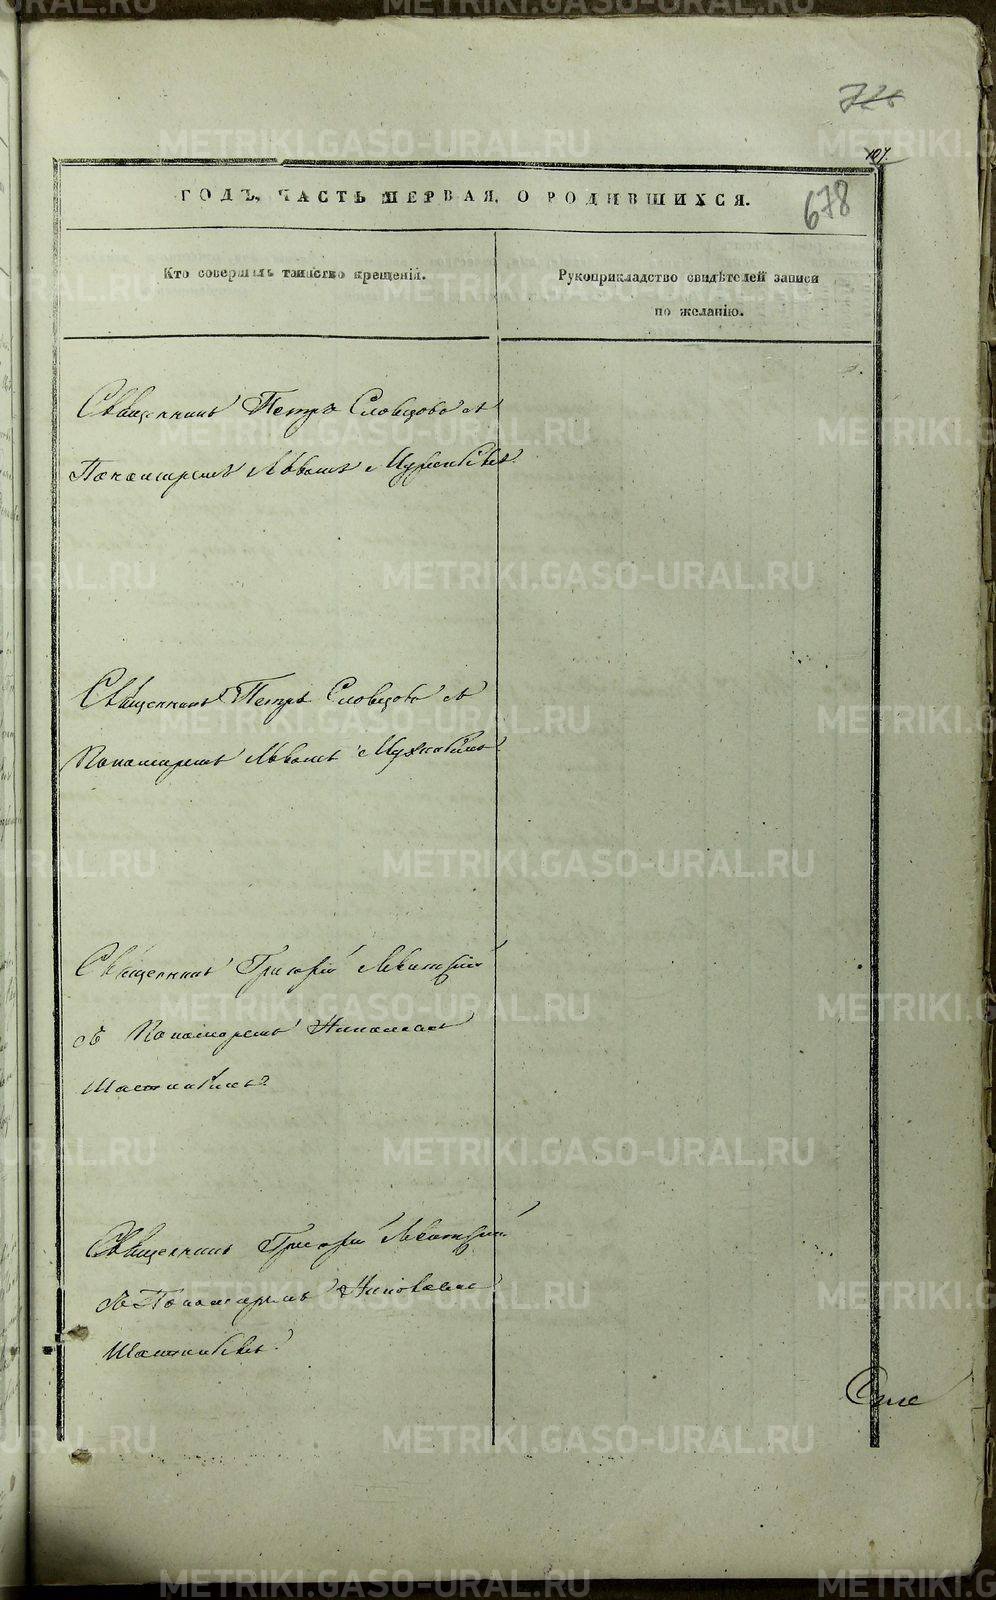 107.
678
ГОДЪ, ЧАСТЬ ПЕРВАЯ, О РОДИВШИХСЯ.
Кто совершалъ таинство крещенія.
Рукоприкладство свидѣтелей записи
по желанію.
Священникъ Петръ Словцовъ съ
Пономаремъ Львомъ
Священникъ Петръ Словцовъ съ
Пономаремъ Львомъ
Священникъ Григорій
съ Пономаремъ Николаемъ
Священникъ Григорій
съ Пономаремъ Николаемъ
METRIKI.GASO-URAL.RU